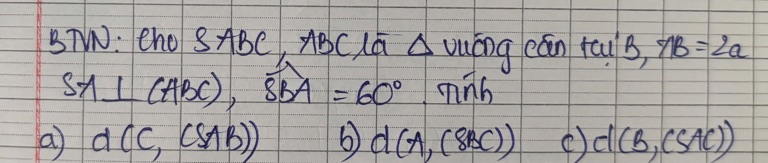 BTVN: cho SABC, ABC là Δ vuông cân tại B, AB = 2a
SA ⊥ (ABC), SBA = 60°. Tính
a) d(C, (SAB)) b) d(A, (SBC)) c) d(B, (SAC))